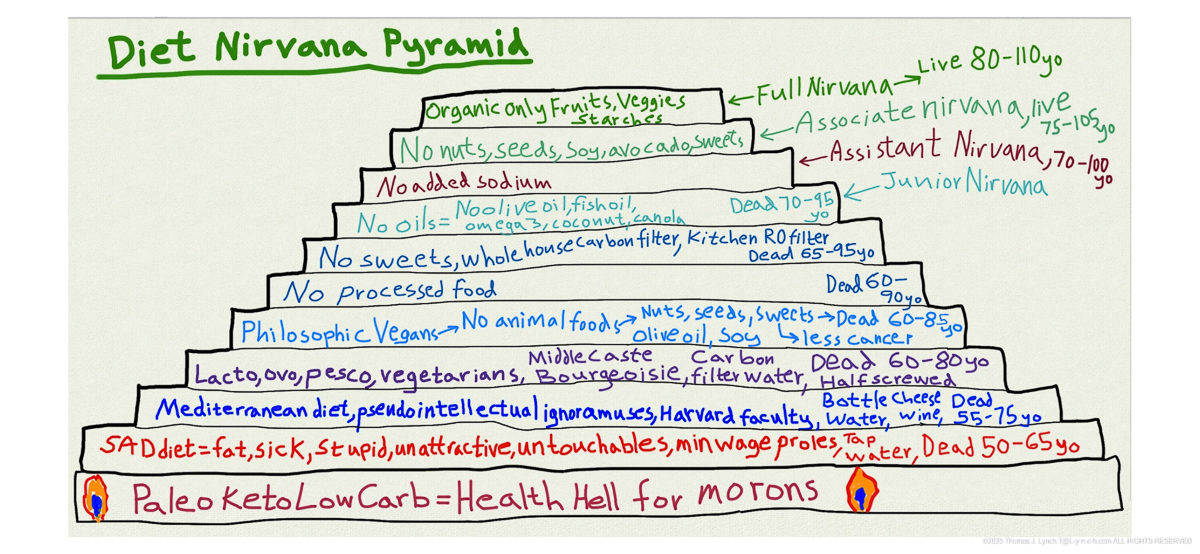 Diet Nirvana Pyramid
Organic only Fruits, Veggies
starches
← Full Nirvana → Live 80-110yo
No nuts, seeds, Soy, avocado, sweets
← Associate nirvana, live
75-105 yo
No added sodium
← Assistant Nirvana, 70-100
yo
No oils = No olive oil, fish oil,
omega 3, coconut, canola
Dead 70-95
yo
← Junior Nirvana
No sweets, whole house carbon filter, Kitchen RO filter
Dead 65-95yo
No processed food
Dead 60-
90yo
Philosophic Vegans → No animal foods → Nuts, seeds, sweets → Dead 60-85
yo
Olive oil, Soy ↳ less cancer
Lacto, ovo, pesco, vegetarians, Middle Caste
Bourgeoisie, Carbon
filter water, Dead 60-80yo
Half screwed
Mediterranean diet, pseudo intellectual ignoramuses, Harvard faculty, Bottle
Water, Cheese
wine, Dead
55-75 yo
SAD diet = fat, sick, stupid, unattractive, untouchables, min wage proles, Tap
water, Dead 50-65 yo
Paleo Keto Low Carb = Health Hell for morons
©2025 Thomas J. Lynch T@L-y-n-c-h.com ALL RIGHTS RESERVED